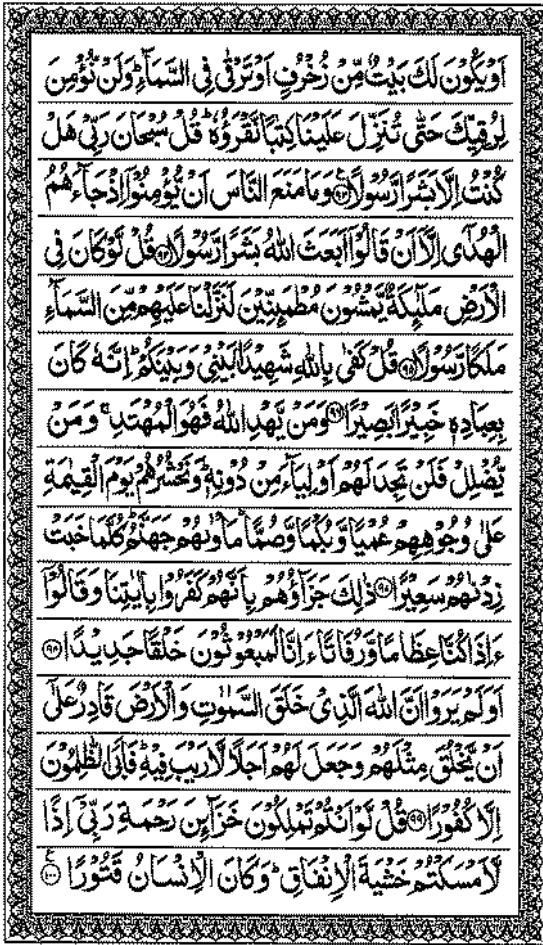 اَوْ يَكُوْنَ لَكَ بَيْتٌ مِّنْ زُخْرُفٍ اَوْ تَرْقٰى فِى السَّمَآءِ ؕ وَلَنْ نُّؤْمِنَ
لِرُقِيِّكَ حَتّٰى تُنَزِّلَ عَلَيْنَا كِتٰبًا نَّقْرَؤُهٗ ؕ قُلْ سُبْحَانَ رَبِّىْ هَلْ
كُنْتُ اِلَّا بَشَرًا رَّسُوْلًا ۩۹۳ وَمَا مَنَعَ النَّاسَ اَنْ يُّؤْمِنُوْۤا اِذْ جَآءَهُمُ
الْهُدٰۤى اِلَّاۤ اَنْ قَالُوْۤا اَبَعَثَ اللّٰهُ بَشَرًا رَّسُوْلًا ۹۴ قُلْ لَّوْ كَانَ فِى
الْاَرْضِ مَلٰٓئِكَةٌ يَّمْشُوْنَ مُطْمَئِنِّيْنَ لَنَزَّلْنَا عَلَيْهِمْ مِّنَ السَّمَآءِ
مَلَكًا رَّسُوْلًا ۹۵ قُلْ كَفٰى بِاللّٰهِ شَهِيْدًۢا بَيْنِىْ وَبَيْنَكُمْ ؕ اِنَّهٗ كَانَ
بِعِبَادِهٖ خَبِيْرًۢا بَصِيْرًا ۹۶ وَمَنْ يَّهْدِ اللّٰهُ فَهُوَ الْمُهْتَدِ ۚ وَمَنْ
يُّضْلِلْ فَلَنْ تَجِدَ لَهُمْ اَوْلِيَآءَ مِنْ دُوْنِهٖ ؕ وَنَحْشُرُهُمْ يَوْمَ الْقِيٰمَةِ
عَلٰى وُجُوْهِهِمْ عُمْيًا وَّبُكْمًا وَّصُمًّا ؕ مَاْوٰىهُمْ جَهَنَّمُ ؕ كُلَّمَا خَبَتْ
زِدْنٰهُمْ سَعِيْرًا ۹۷ ذٰلِكَ جَزَآؤُهُمْ بِاَنَّهُمْ كَفَرُوْا بِاٰيٰتِنَا وَقَالُوْۤا
ءَاِذَا كُنَّا عِظَامًا وَّرُفَاتًا ءَاِنَّا لَمَبْعُوْثُوْنَ خَلْقًا جَدِيْدًا ۹۸
اَوَلَمْ يَرَوْا اَنَّ اللّٰهَ الَّذِىْ خَلَقَ السَّمٰوٰتِ وَالْاَرْضَ قَادِرٌ عَلٰۤى
اَنْ يَّخْلُقَ مِثْلَهُمْ وَجَعَلَ لَهُمْ اَجَلًا لَّا رَيْبَ فِيْهِ ؕ فَاَبَى الظّٰلِمُوْنَ
اِلَّا كُفُوْرًا ۹۹ قُلْ لَّوْ اَنْتُمْ تَمْلِكُوْنَ خَزَآئِنَ رَحْمَةِ رَبِّىْۤ اِذًا
لَّاَمْسَكْتُمْ خَشْيَةَ الْاِنْفَاقِ ؕ وَكَانَ الْاِنْسَانُ قَتُوْرًا ۱۰۰ ع